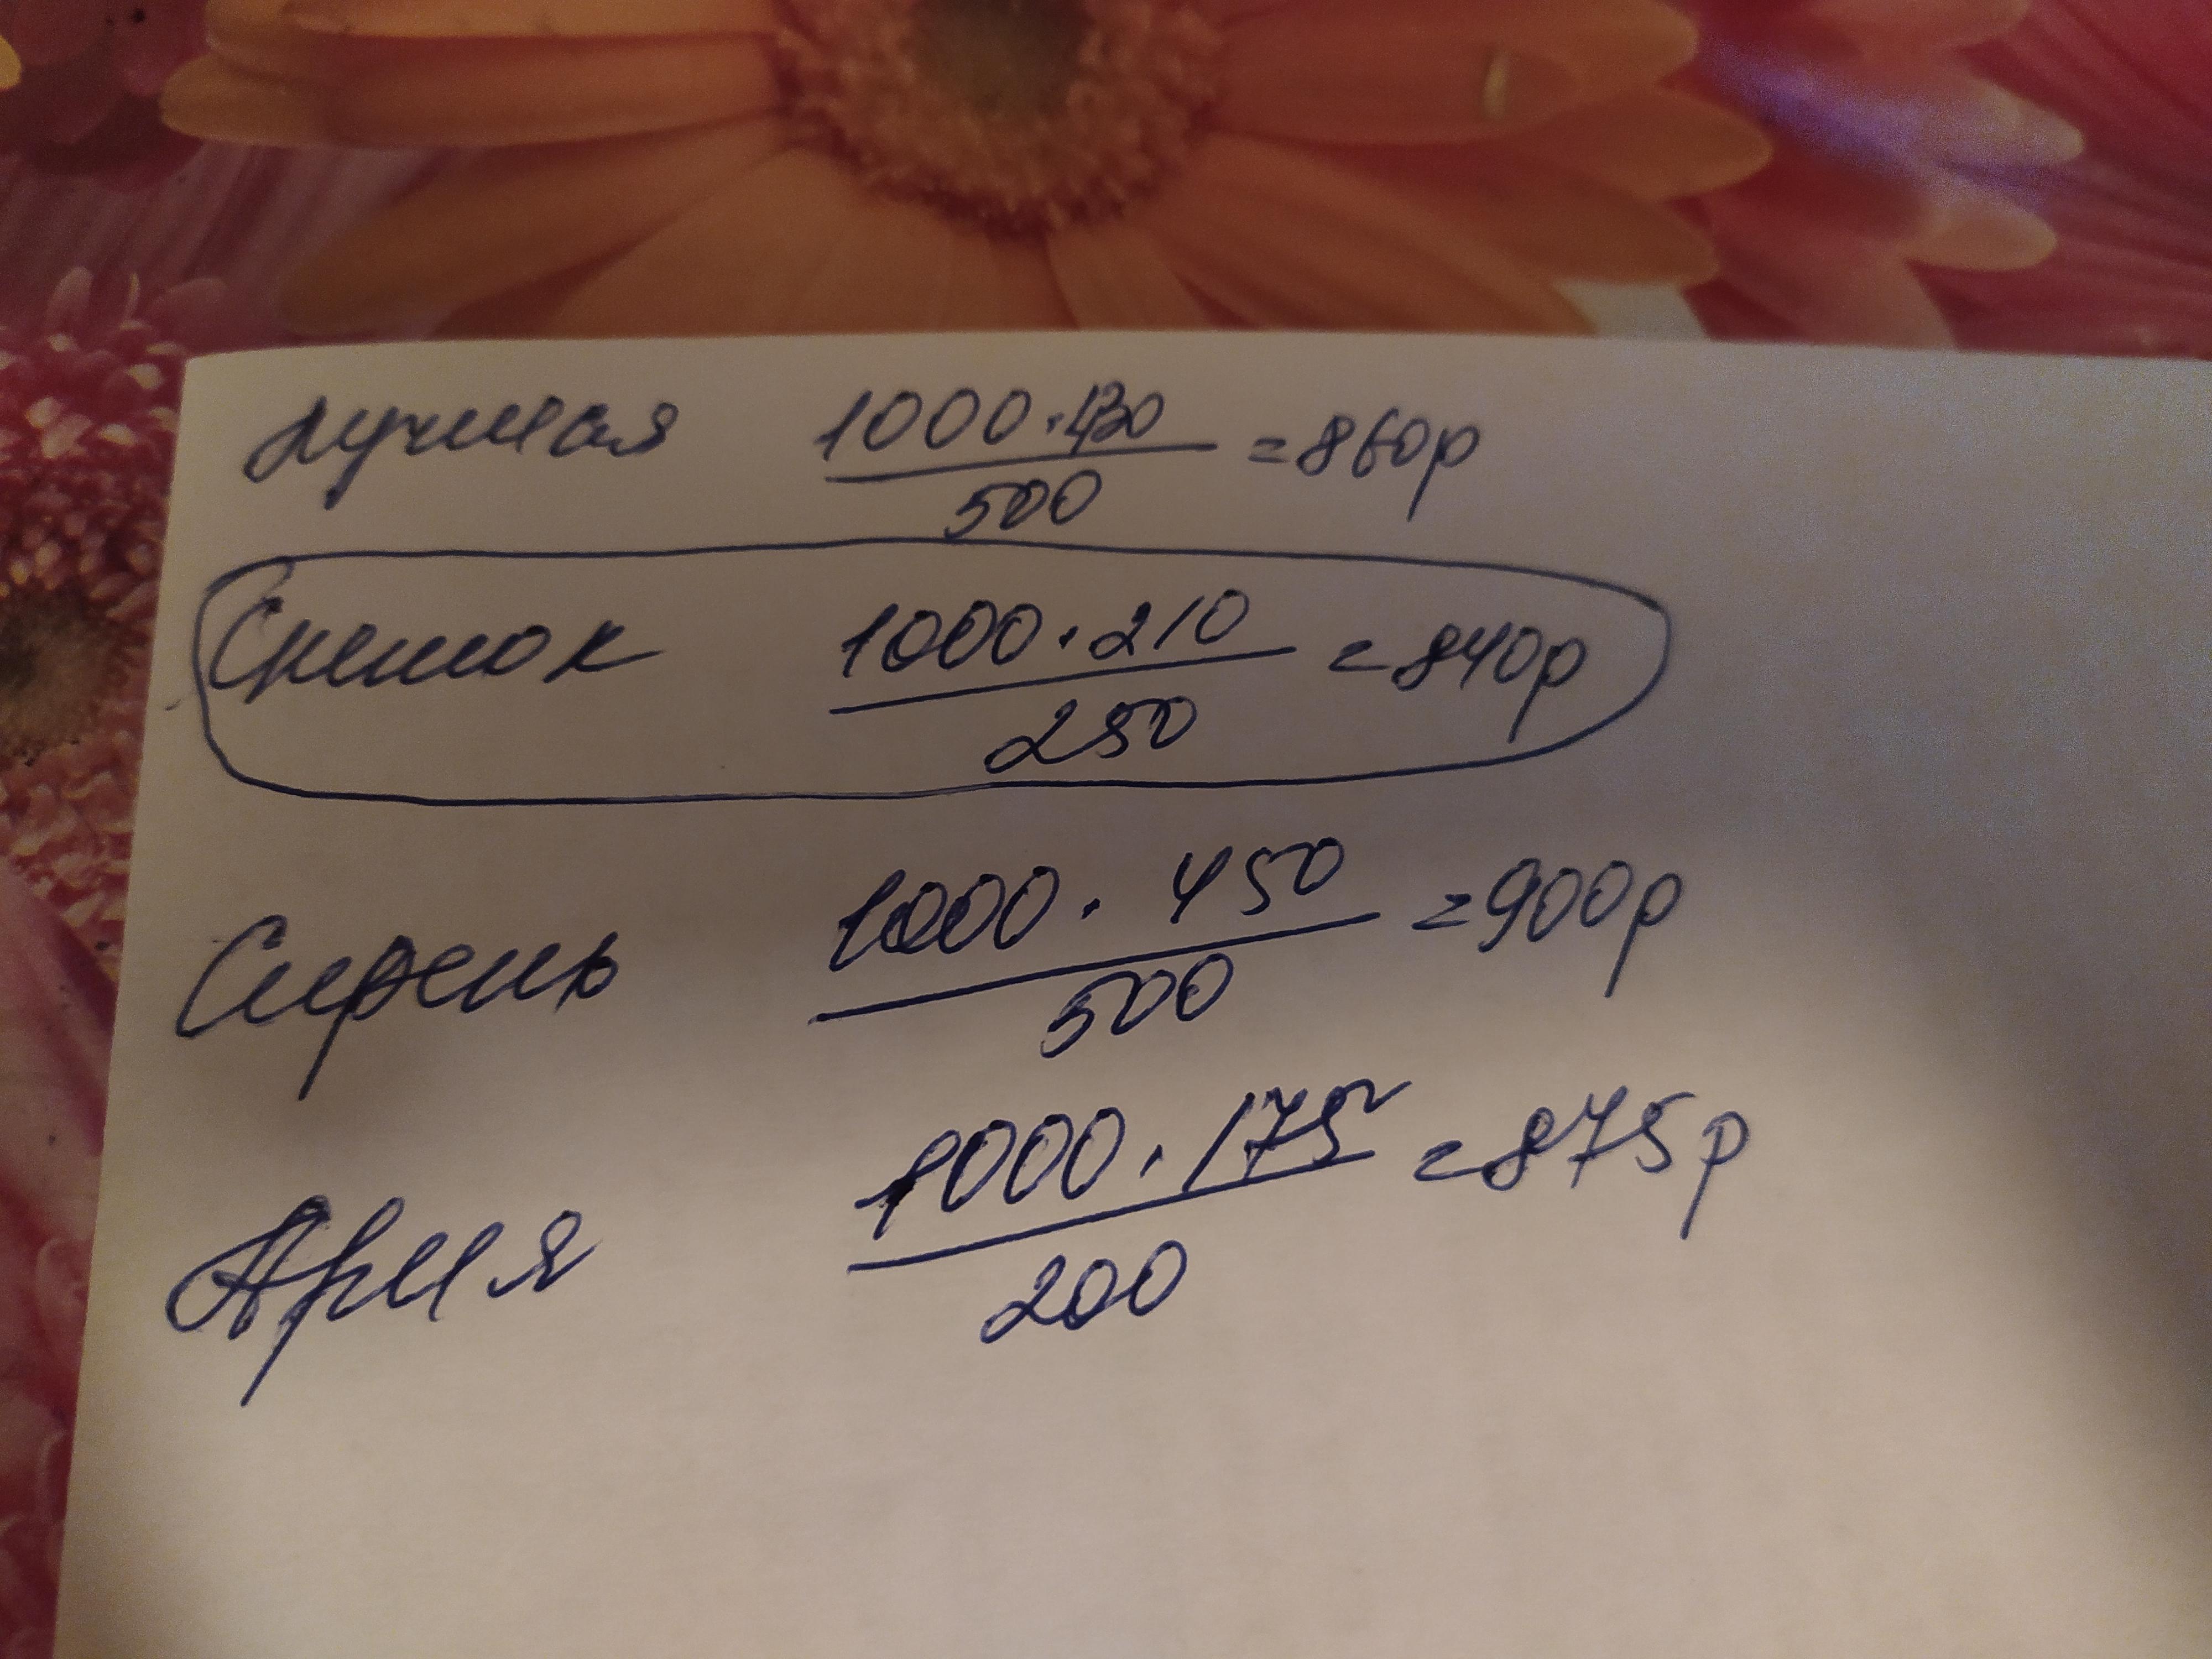 Лучшая 1000·430/500 =860р
Снежок 1000·210/250 =840р
Сирень 1000·450/500 =900р
Ария 1000·175/200 =875р